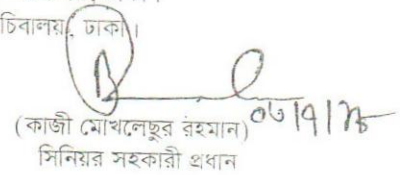 চিবালয়, ঢাকা।
(কাজী মোখলেছুর রহমান)
সিনিয়র সহকারী প্রধান